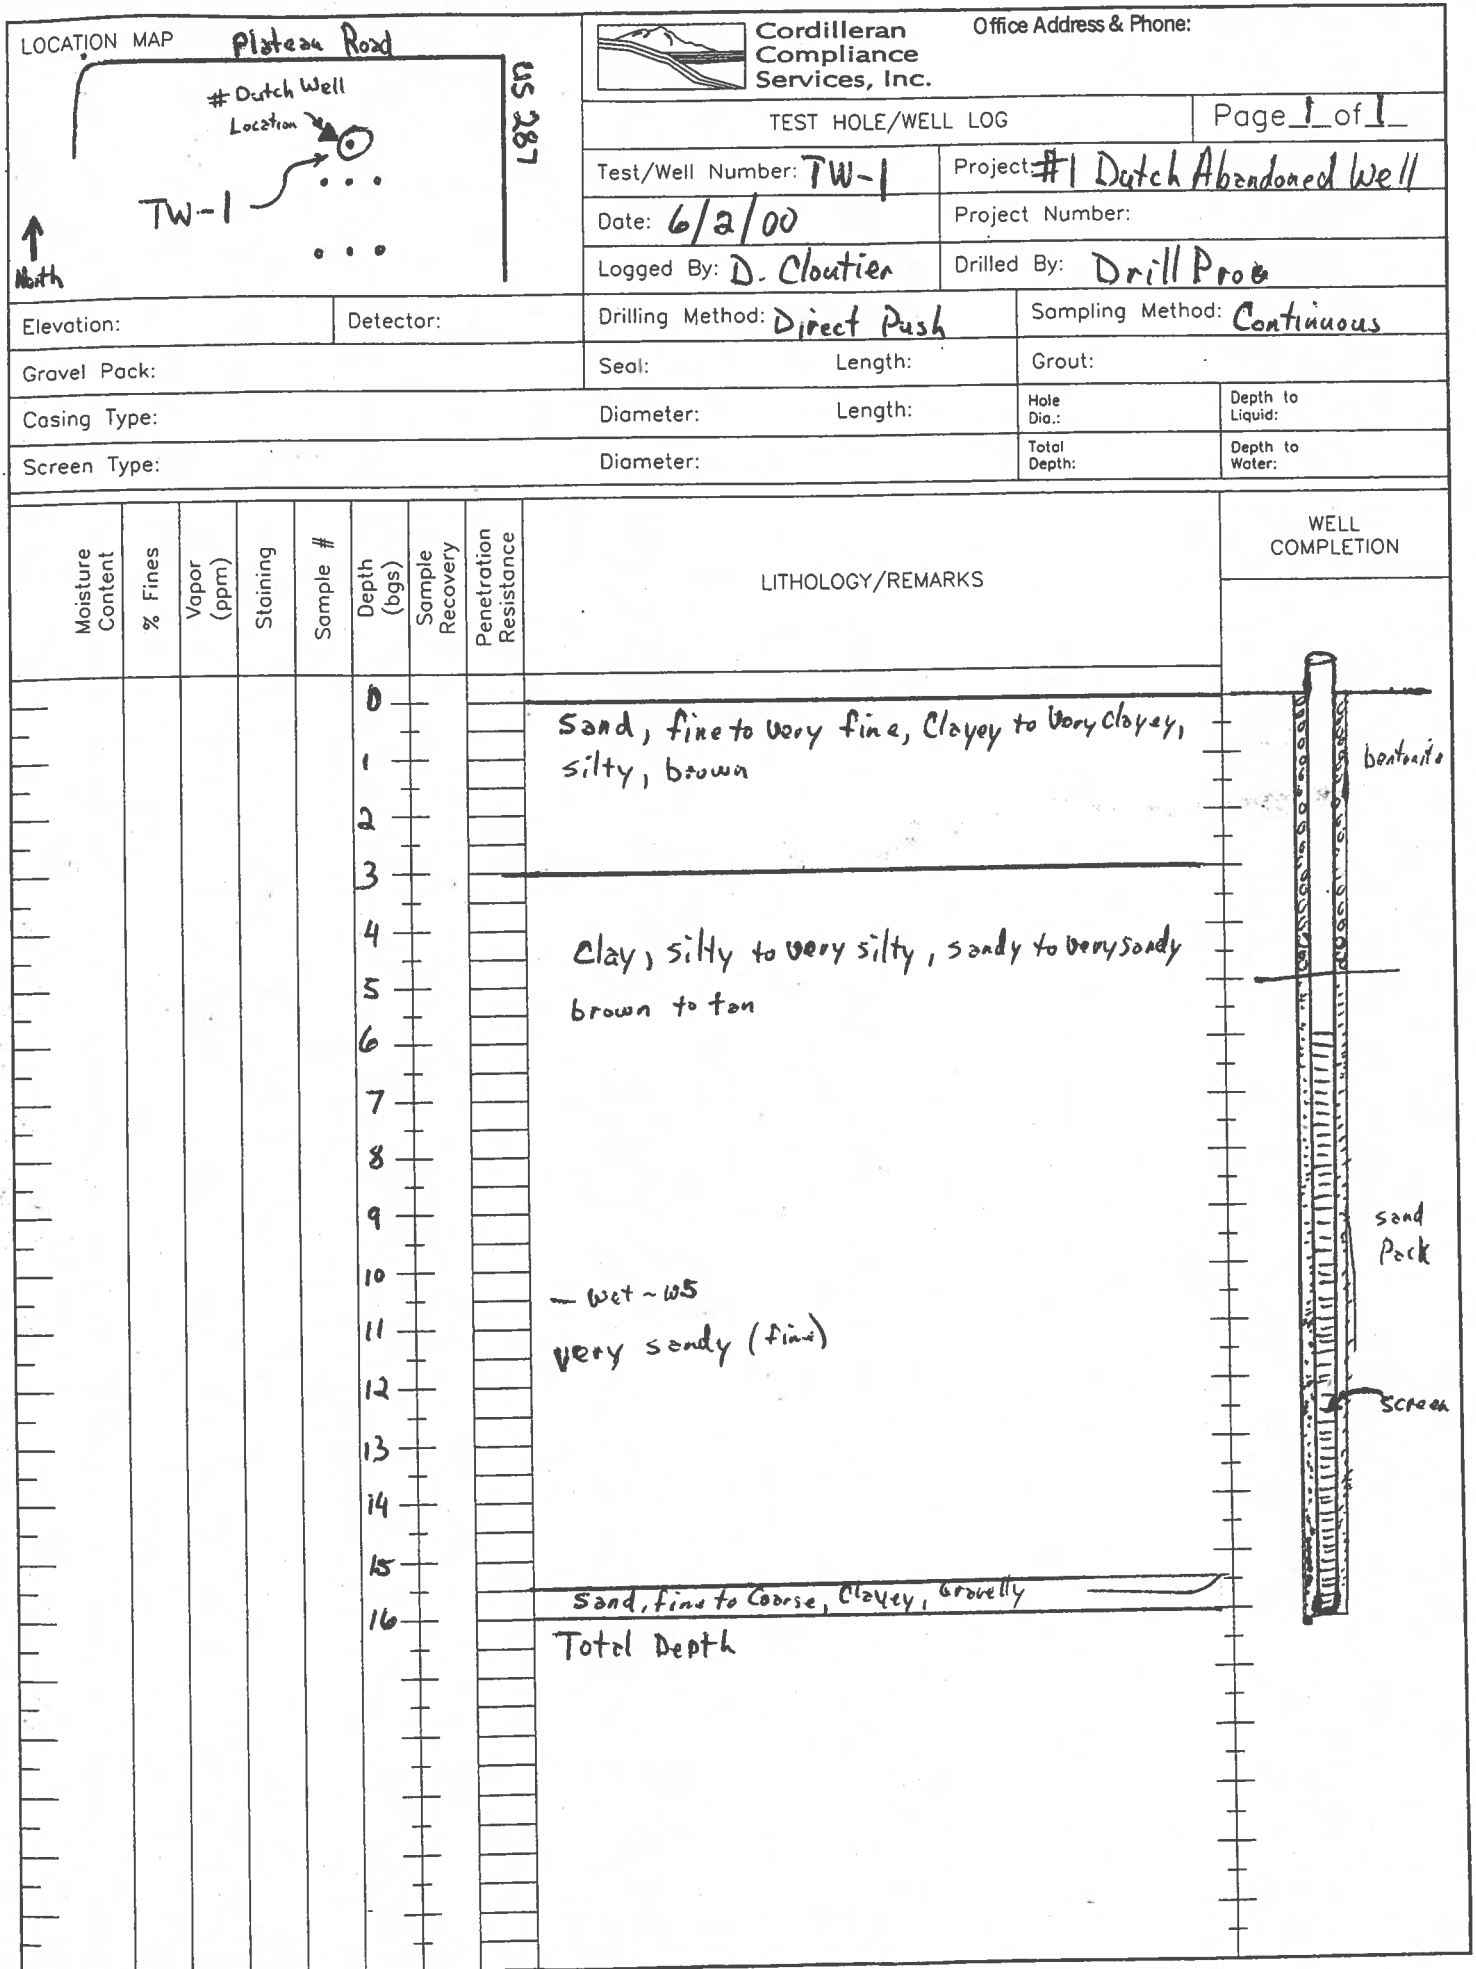 LOCATION MAP
Plateau Road
US 287
# Dutch Well
Location
TW-1
North
Cordilleran
Compliance
Services, Inc.
Office Address & Phone:
TEST HOLE/WELL LOG
Page 1 of 1
Test/Well Number: TW-1
Project: #1 Dutch Abandoned Well
Date: 6/2/00
Project Number:
Logged By: D. Cloutier
Drilled By: Drill Pros
Elevation:
Detector:
Drilling Method: Direct Push
Sampling Method: Continuous
Gravel Pack:
Seal: Length:
Grout:
Casing Type:
Diameter: Length:
Hole
Dia.:
Depth to
Liquid:
Screen Type:
Diameter:
Total
Depth:
Depth to
Water:
Moisture
Content
% Fines
Vapor
(ppm)
Staining
Sample #
Depth
(bgs)
Sample
Recovery
Penetration
Resistance
LITHOLOGY/REMARKS
WELL
COMPLETION
0
Sand, fine to very fine, Clayey to Very Clayey,
1
silty, brown
bentonite
2
3
4
Clay, silty to very silty, sandy to very sandy
5
brown to tan
6
7
8
9
sand
Pack
10
- wet ~
11
very sandy (fine)
12
screen
13
14
15
Sand, fine to Coarse, Clayey, Gravelly
16
Total Depth